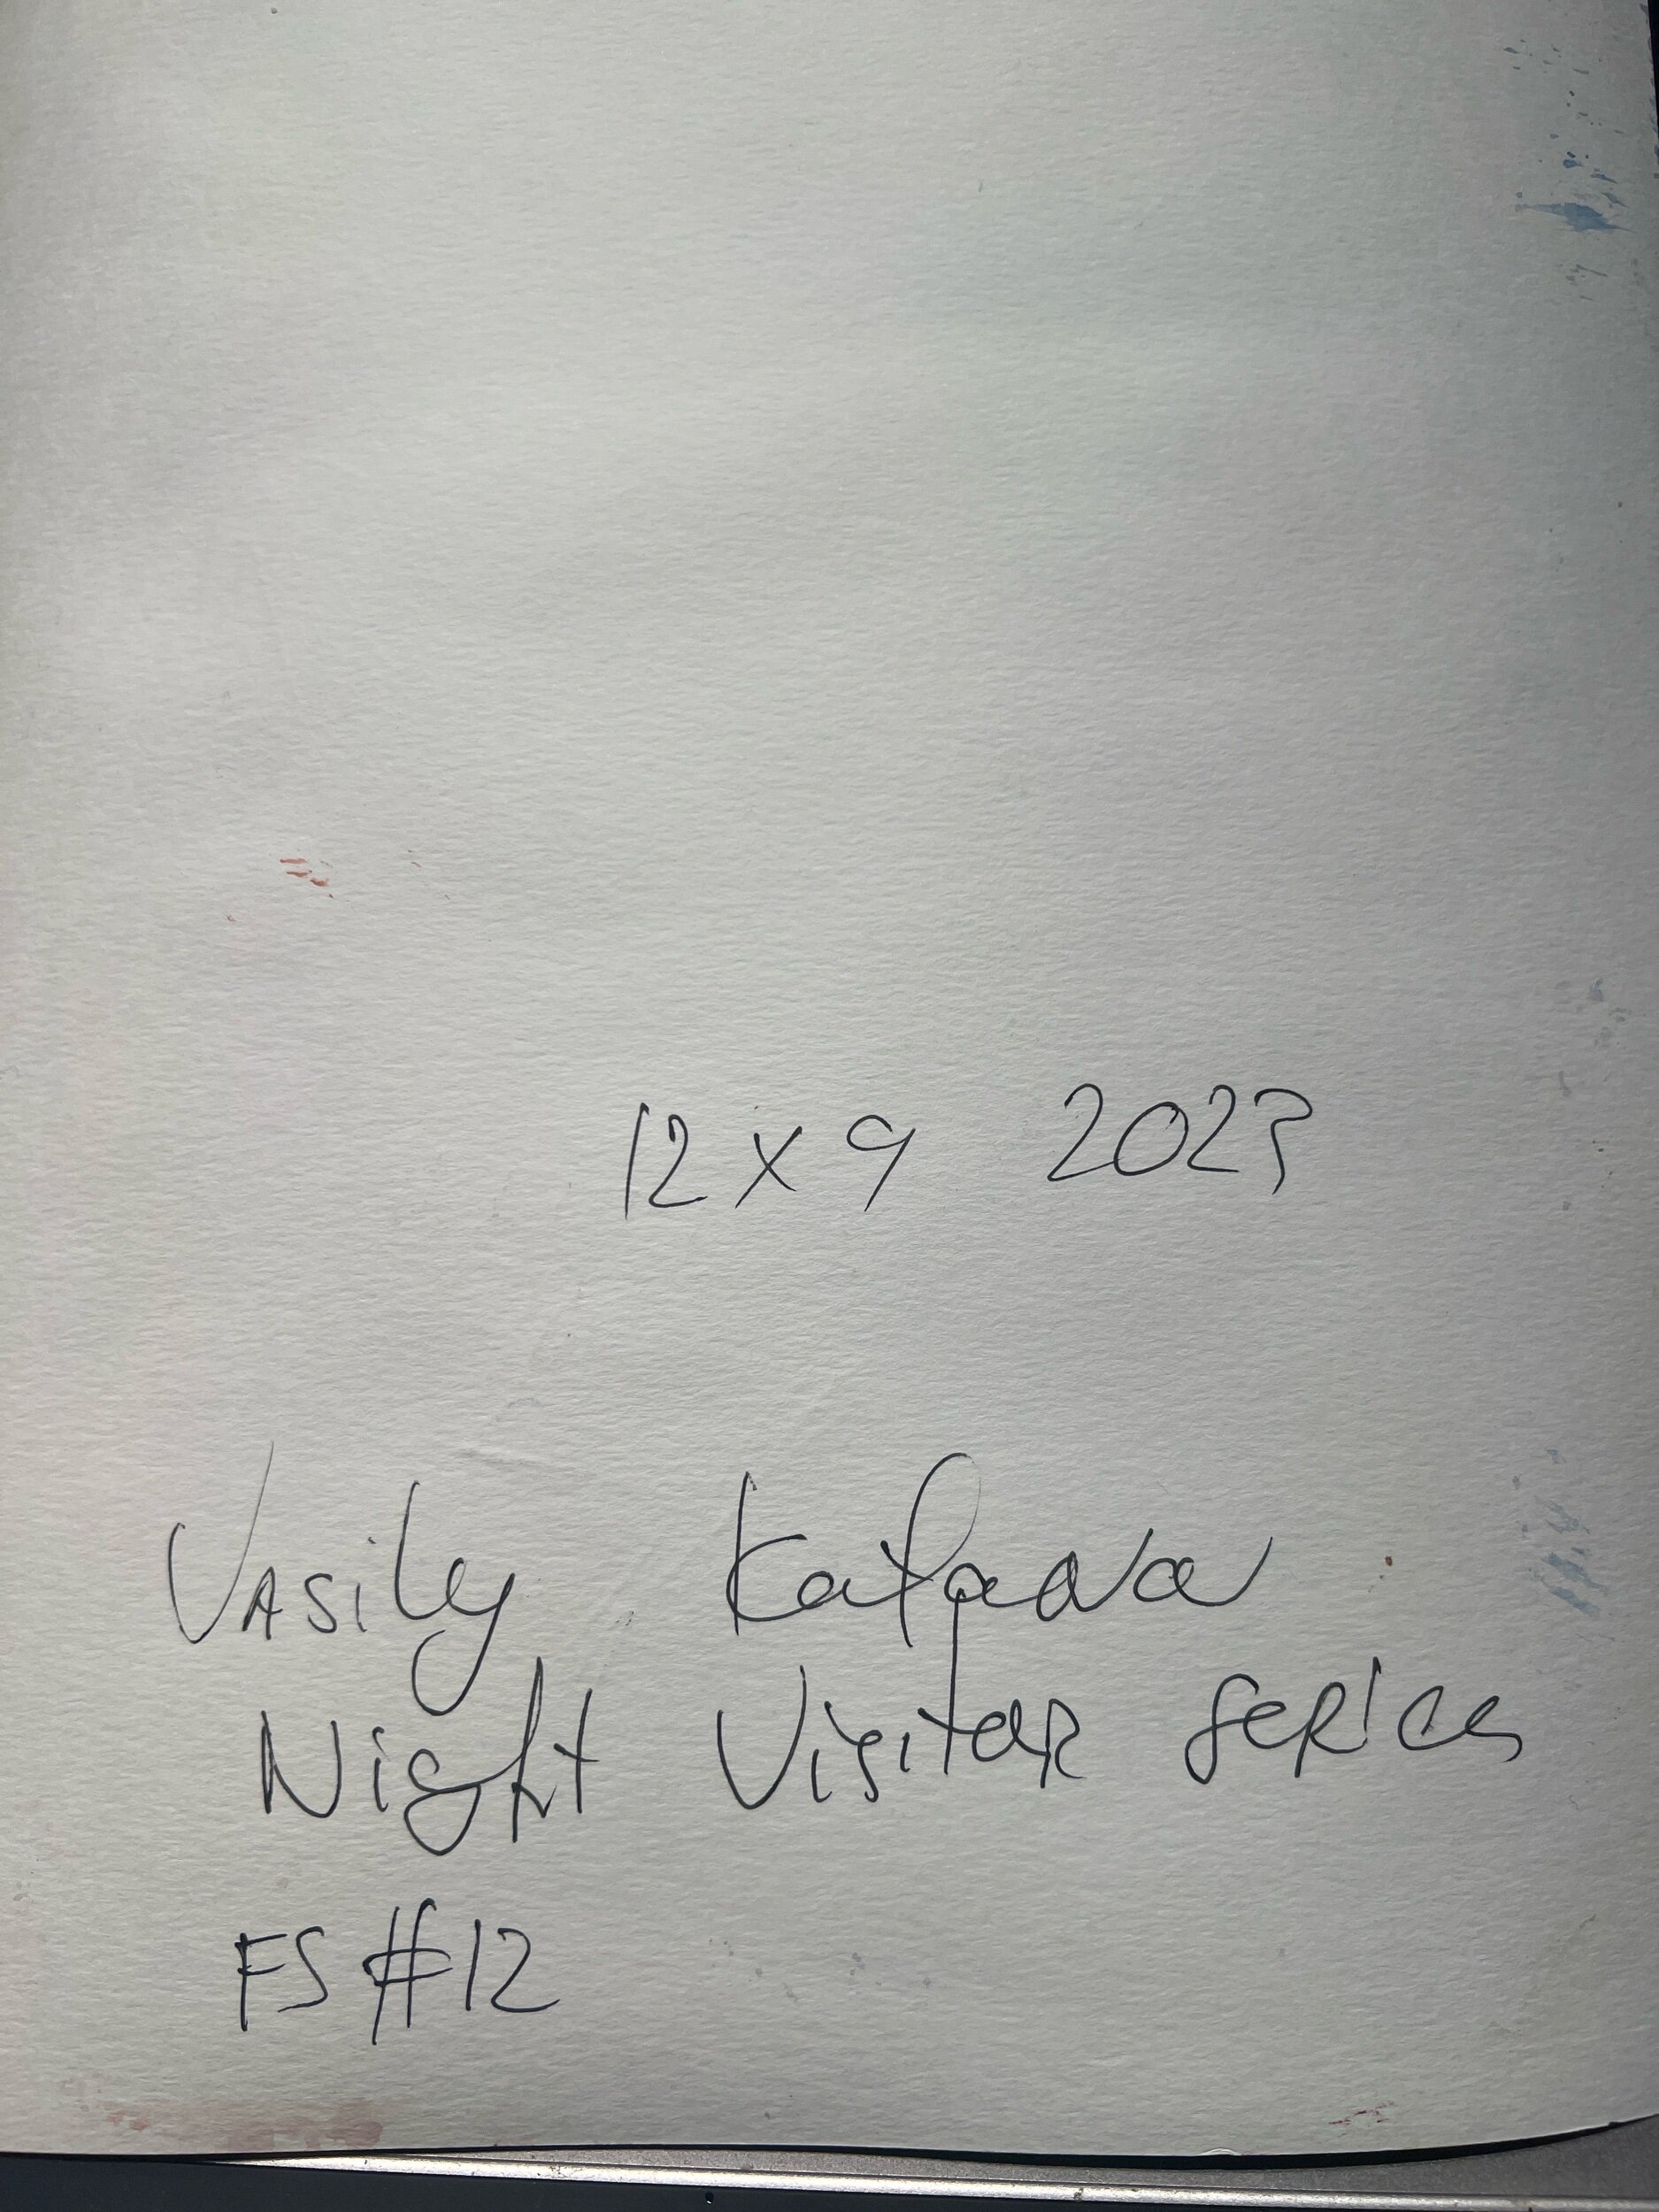 12 x 9 2023
Vasily Kafanov
Night Visitor series
FS #12